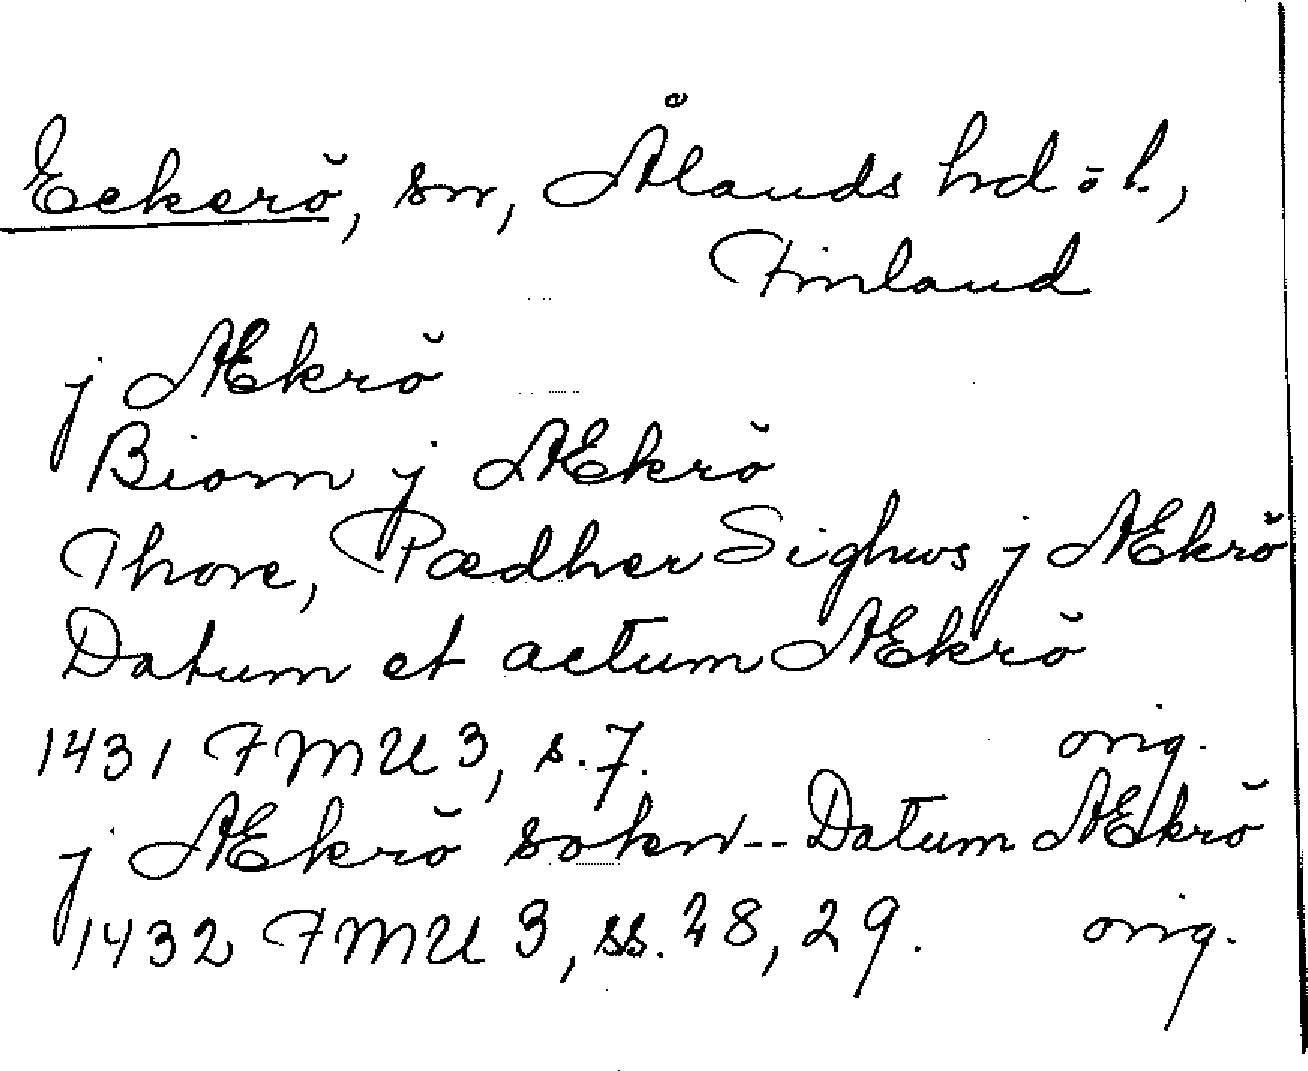 Eckerö, sn, Ålands hd o l.,
Finland
j Ækrö
Biorn j Ækrö
Thore, Pædher Sighws j Ækrö
Datum et actum Ækrö
1431 FMU 3, s. 7. orig.
j Ækrö sokn -- Datum Ækrö
1432 FMU 3, ss. 28, 29. orig.